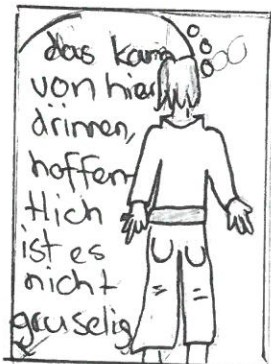 das kam
von hier
drinnen,
hoffen-
tlich
ist es
nicht
gruselig